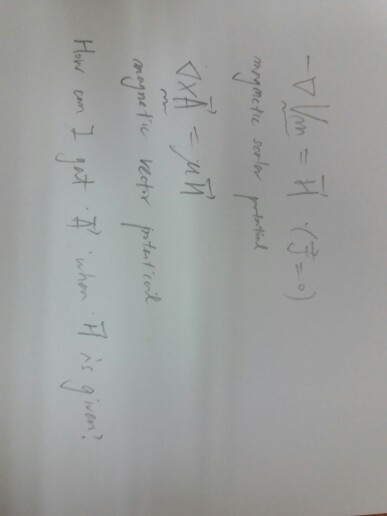 -∇Vm = H⃗ . (J⃗ = 0)
magnetic scalar potential
∇×A⃗ = μH⃗
magnetic vector potential
How can I get A⃗ when H⃗ is given?